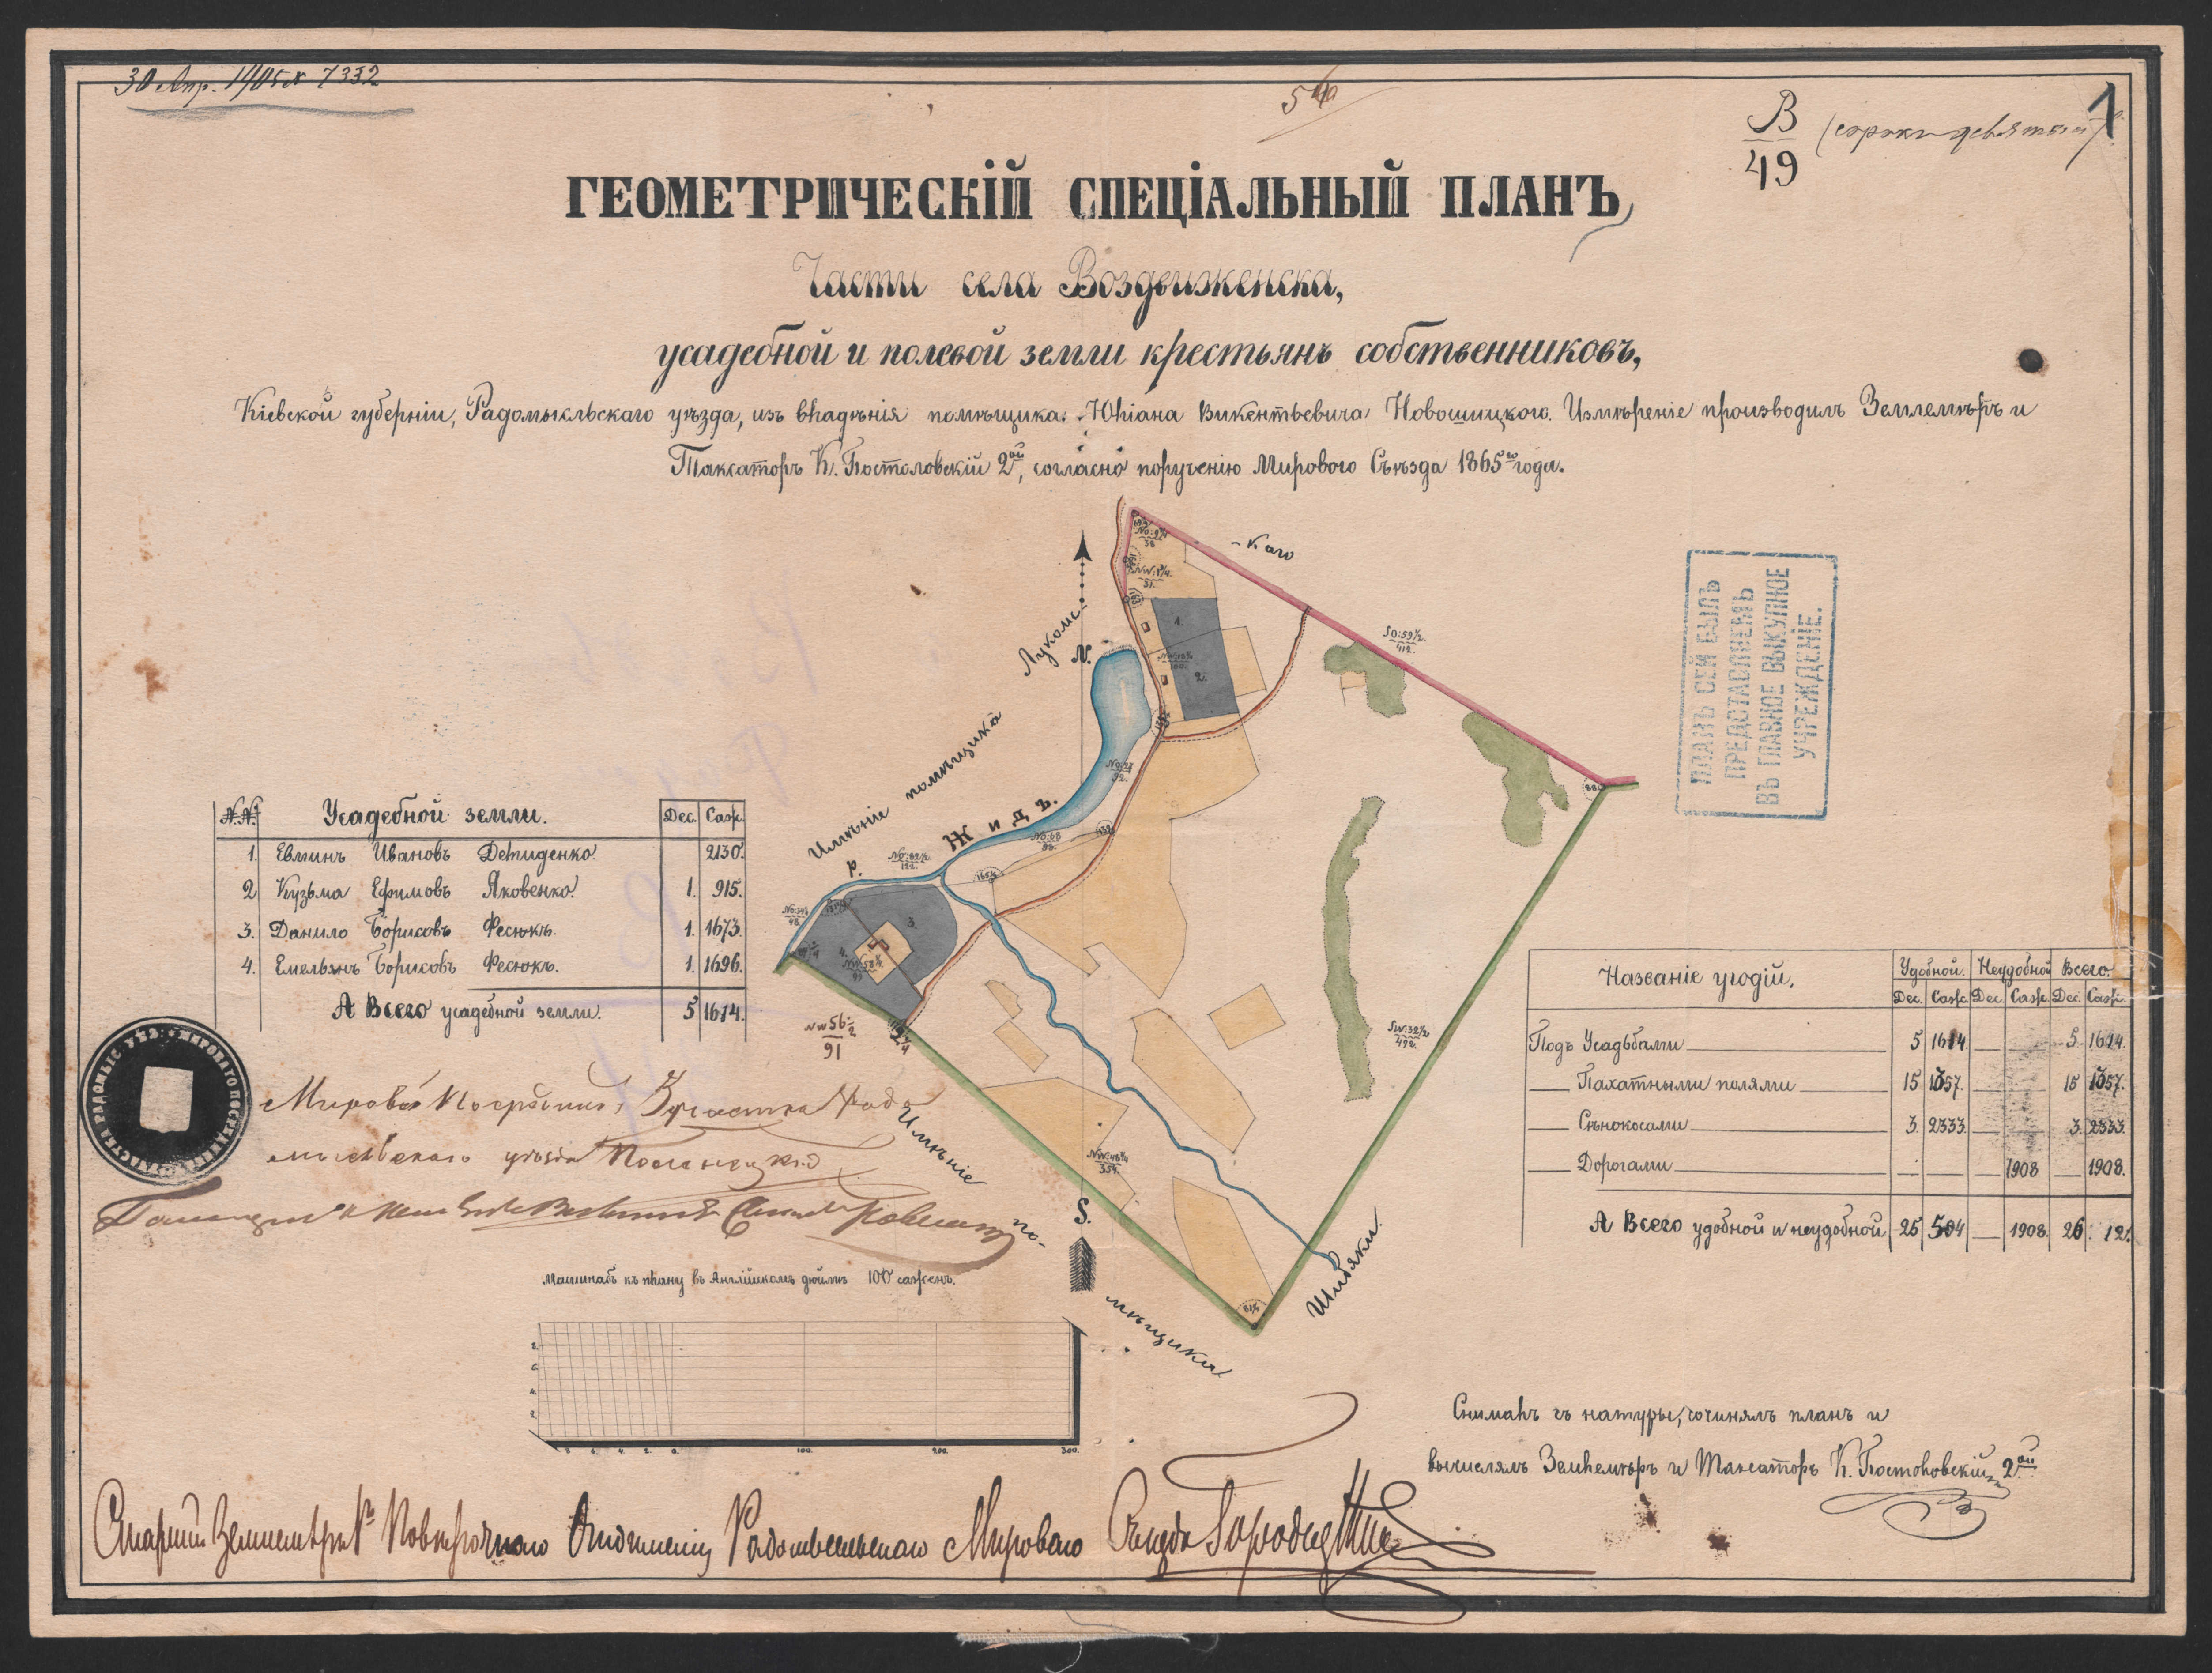 30 Апр. 1905 № 7332
В
49
1
ГЕОМЕТРИЧЕСКІЙ СПЕЦІАЛЬНЫЙ ПЛАНЪ
Части села Воздвиженска,
усадебной и полевой земли крестьянъ собственниковъ,
Кіевской губерніи, Радомысльскаго уѣзда, изъ владѣнія помѣщика Юліана Викентьевича Новошицкого. Измѣреніе производилъ Землемѣръ и
Таксаторъ К. Постоловскій 2ой, согласно порученію Мирового Съѣзда 1865го года.
-каго
Лукомс-
N.
SO:59½.
412.
1.
2.
ПЛАНЪ СЕЙ БЫЛЪ
ПРЕДСТАВЛЕНЪ
ВЪ ГЛАВНОЕ ВЫКУПНОЕ
УЧРЕЖДЕНІЕ.
Имѣніе помѣщика
р. Жидъ.
3.
4.
NW 56½
91
SW:32½
492.
№№ Усадебной земли. Дес. Саж.
1. Евминъ Ивановъ Демиденко. 2130.
2 Кузьма Ефимовъ Яковенко. 1. 915.
3. Данило Борисовъ Фесюкъ. 1. 1673.
4. Емельянъ Борисовъ Фесюкъ. 1. 1696.
А Всего усадебной земли. 5 1614.
Названіе угодій. Удобной. Неудобной Всего.
Дес. Саж. Дес. Саж. Дес. Саж.
Подъ Усадьбами 5 1614. 5. 1614.
Пахатными полями 15 1057. 15 1057.
Сѣнокосами 3. 2333. 3. 2333.
Дорогами 1908 1908.
А Всего удобной и неудобной 25 504 1908. 26 12.
Мировой Посредникъ 3 участка Радо
мысльскаго уѣзда
Имѣніе по-
мѣщика
Шибяки.
S.
Масштабъ къ плану въ Англійскомъ дюймѣ 100 саженъ.
8. 6. 4. 2. 0. 100. 200. 300.
Снималъ съ натуры, сочинялъ планъ и
вычислялъ Землемѣръ и Таксаторъ К. Постоловскій 2ой
Старшій Землемѣръ Повѣрочнаго Отдѣленія Радомысльскаго Мироваго Съѣзда